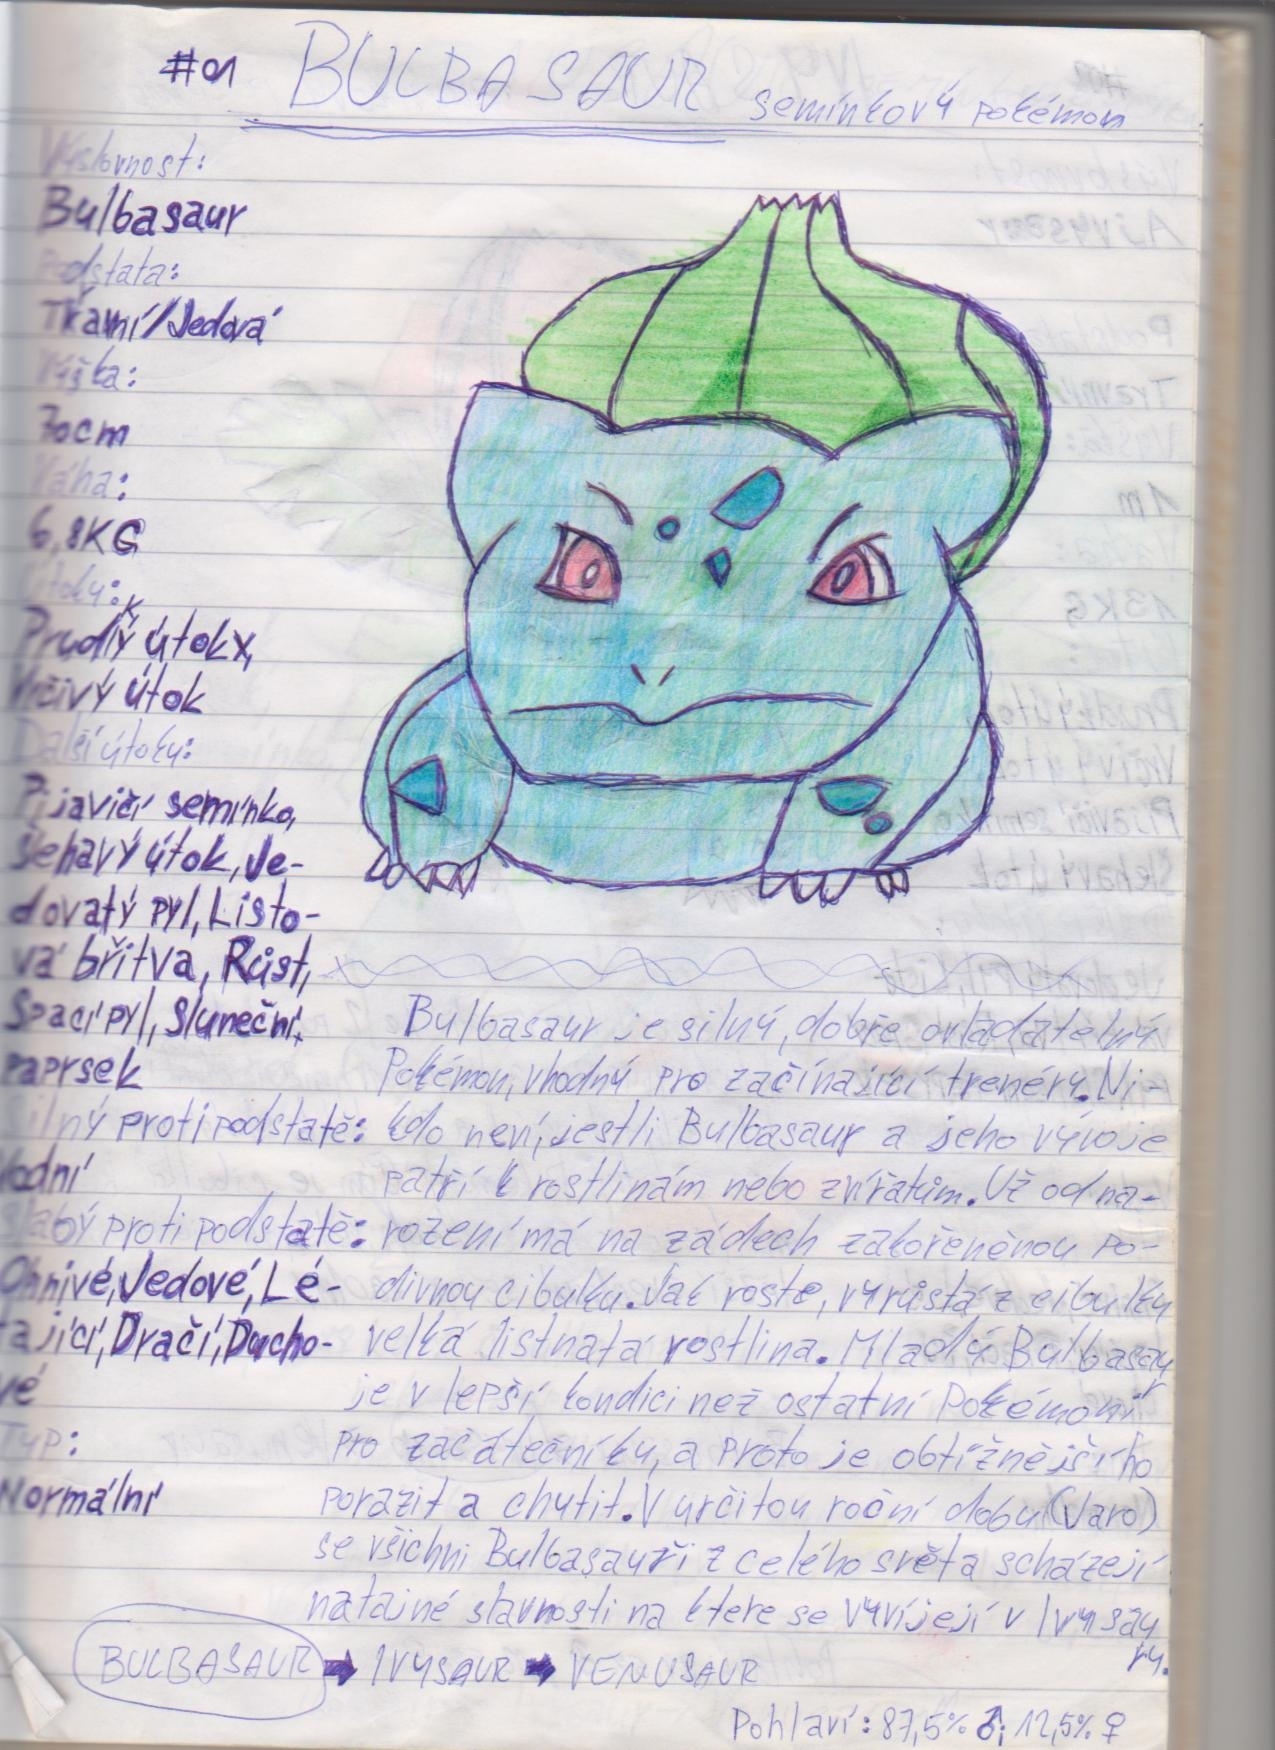 #01 BULBASAUR semínkový pokémon
Výslovnost:
Bulbasaur
Podstata:
Travní/Jedová
Výška:
70cm
Váha:
6,8KG
Útoky:
Prudký útok,
Vrčivý útok
Další útoky:
Pijavičí semínko,
Šlehavý útok, Je-
dovatý pyl, Listo-
vá břitva, Růst,
Spací pyl, Sluneční
paprsek
Silný proti podstatě:
Vodní
Slabý proti podstatě:
Ohnivé, Jedové, Lé-
tající, Dračí, Ducho-
vé
Typ:
Normální
Bulbasaur je silný, dobře ovladatelný
Pokémon, vhodný pro začínající trenéry. Ni-
kdo neví, jestli Bulbasaur a jeho vývoje
patří k rostlinám nebo zvířatům. Už od na-
rození má na zádech zakořeněnou po-
divnou cibulku. Jak roste, vyrůstá z cibulky
velká listnatá rostlina. Mladý Bulbasaur
je v lepší kondici než ostatní Pokémoni
pro začátečníky, a proto je obtížnější ho
porazit a chytit. V určitou roční dobu (Jaro)
se všichni Bulbasauři z celého světa scházejí
na tajné slavnosti na ktere se vyvíjejí v Ivysau
ry.
BULBASAUR → IVYSAUR → VENUSAUR
Pohlaví: 87,5% ♂; 12,5% ♀